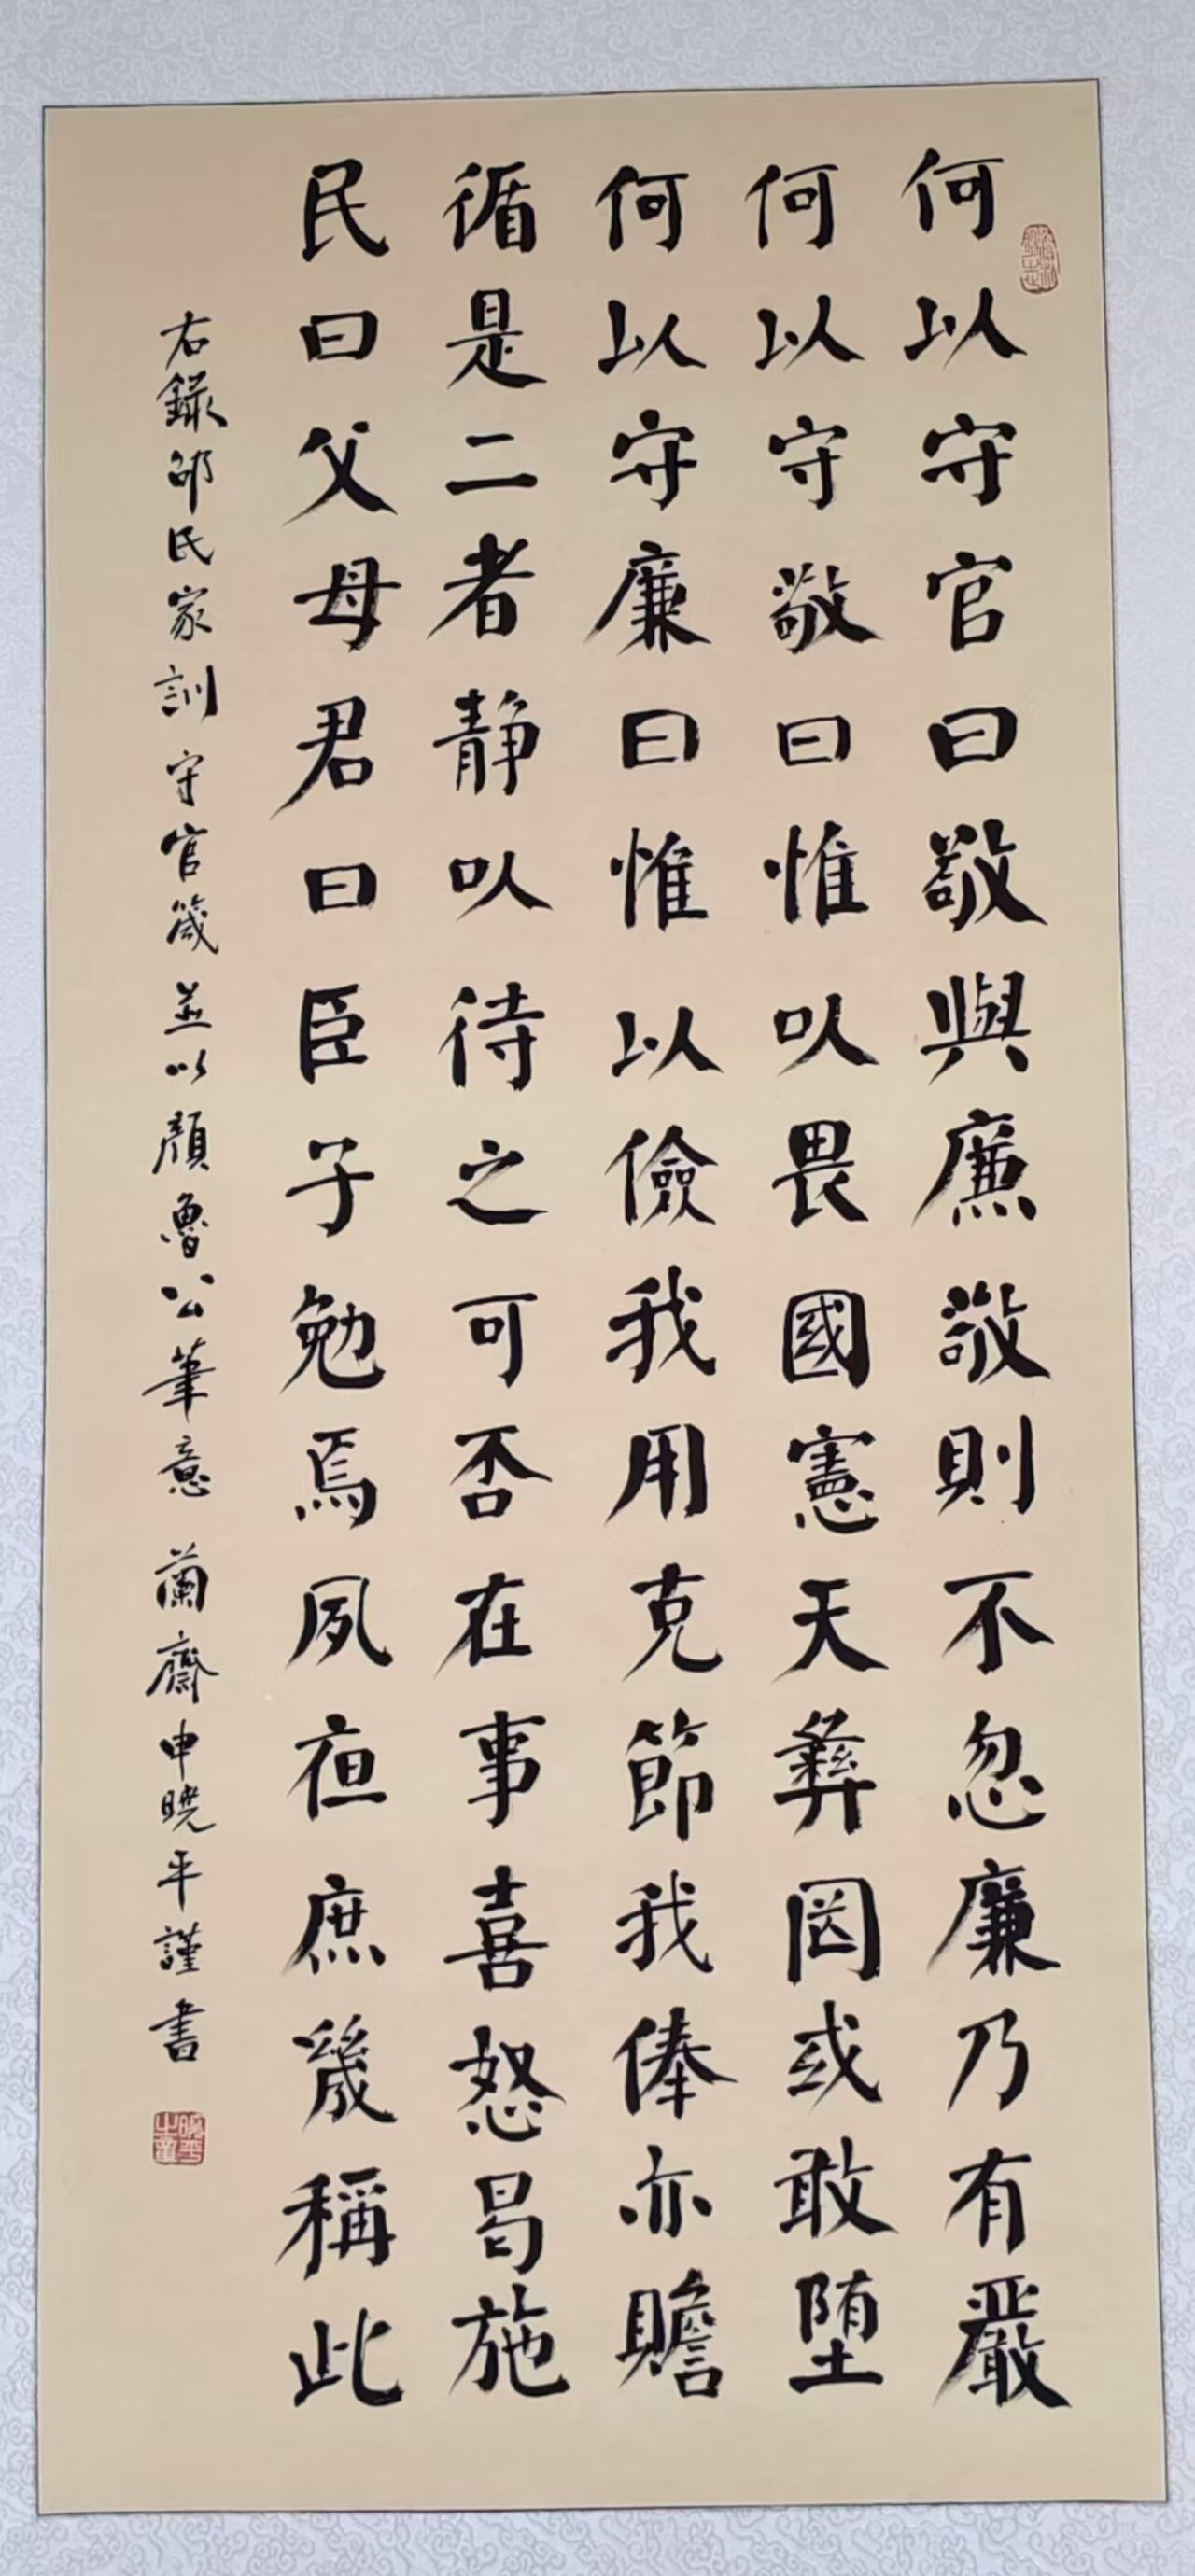 何以守官曰敬與廉敬則不忽廉乃有嚴
何以守敬曰惟以畏國憲天彝罔或敢墮
何以守廉曰惟以儉我用克節我俸亦贍
循是二者靜以待之可否在事喜怒曷施
民曰父母君曰臣子勉焉夙夜庶幾稱此
右錄邵氏家訓守官箴並以顏魯公筆意蘭齋申曉平謹書